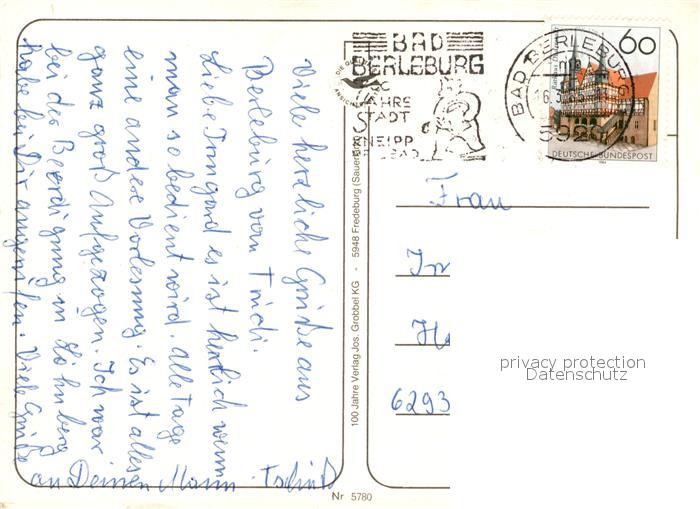 Viele herzliche Grüße aus
Berleburg von Trudi.
Liebe Irmgard es ist herrlich wenn
man so bedient wird. Alle Tage
eine andere Vorlesung. Es ist alles
ganz groß Aufgezogen. Ich war
bei der Beerdigung in Löhnberg
habe bei Dir angerufen. Viele Grüße
an Deinen Mann. Tschüß
BAD
BERLEBURG
JAHRE
STADT
KNEIPP
BAD
BAD BERLEBURG
5920
60
DEUTSCHE BUNDESPOST
100 Jahre Verlag Jos. Grobbel KG - 5948 Fredeburg (Sauerland)
Frau
6293
privacy protection
Datenschutz
Nr 5780